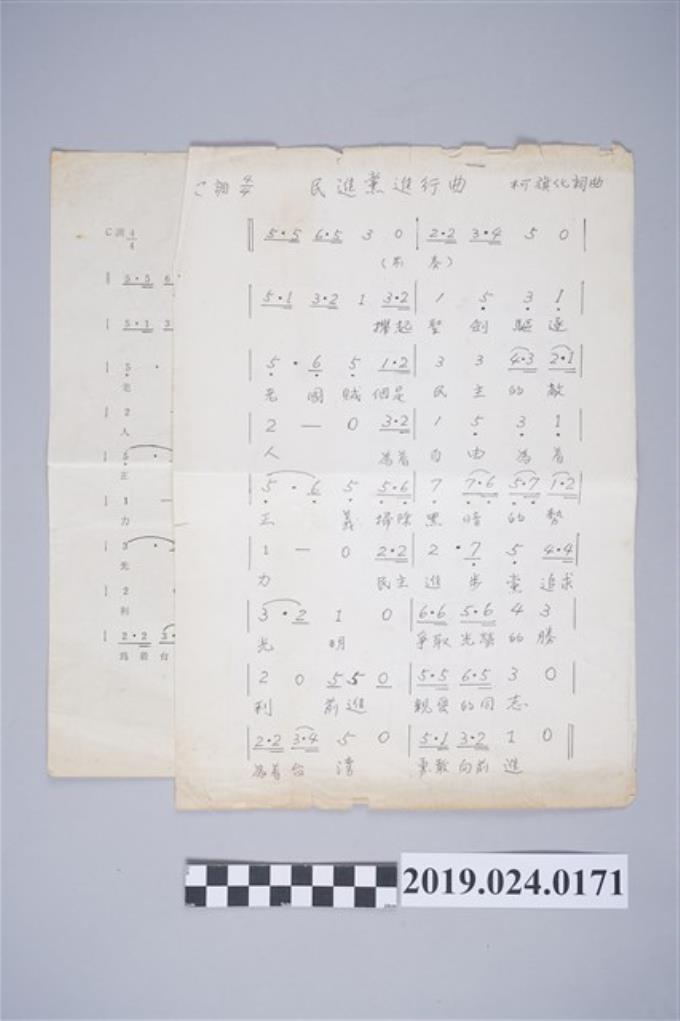 C調 4/4 民進黨進行曲 柯旗化詞曲
5·5 6·5 3 0 | 2·2 3·4 5 0
(前奏)
5·1 3·2 1 3·2 | 1 5 3 1
攑起聖劍驅逐
5·6 5 1·2 | 3 3 4·3 2·1
老國賊個是民主的敵
2 — 0 3·2 | 1 5 3 1
人 為着自由為着
5·6 5 5·6 | 7 7·6 5·7 1·2
正義掃除黑暗的勢
1 — 0 2·2 | 2·7 5 4·4
力 民主進步黨追求
3·2 1 0 | 6·6 5·6 4 3
光明 爭取光榮的勝
2 0 5 5 0 | 5·5 6·5 3 0
利 前進 親愛的同志
2·2 3·4 5 0 | 5·1 3·2 1 0
為着台灣 勇敢向前進
C調 4/4
5·5 6
5·1 3
5 ·
老
2
人
5
正
1 —
力
3
光
2
利
2·2 3·
爲着台
2019.024.0171